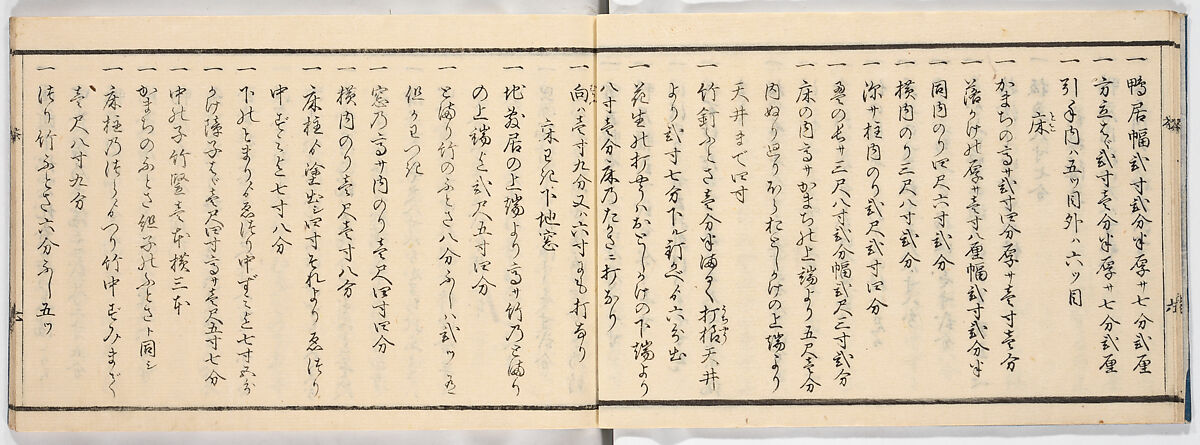 一 鴨居幅弐寸弐分半厚サ七分弐厘
一 方立はゞ弐寸壱分半厚サ七分弐厘
一 引手内ハ五ツ目外ハ六ツ目
床
一 かまちの高サ弐寸四分厚サ壱寸壱分
一 落かけの厚サ壱寸八厘幅弐寸弐分半
一 同内のり四尺六寸弐分
一 横内のり三尺八寸弐分
一 深サ柱内のり弐尺弐寸四分
一 畳の長サ三尺八寸弐分幅弐尺三寸弐分
一 床の内高サかまちの上端より五尺壱分
内ぬり廻りおとしかけの上端より
天井まで四寸
一 竹釘ふとさ壱分半
より弐寸七分下ル釘
一 花生の打やうハおとしかけの下端より
八寸壱分床のたかさニ打なり
一 向ハ壱寸九分又ハ六寸にも打なり
床わき下地窓
一 地敷居の上端より高サ竹のとまり
の上端と弐尺五寸四分
一 とまり竹のふとさ八分ふしハ弐ツ
但
一 窓の高サ内のり壱尺四寸四分
一 横内のり壱尺壱寸八分
一 床柱より塗出シ四寸それより
中すミと七寸八分
一 下のとまり
一 かけ障子はゞ壱尺四寸高サ壱尺五寸七分
一 中の子竹竪壱本横三本
一 かまちのふとさ組子のふとさト同シ
一 床柱のはしらよりつり竹中すみまで
壱尺八寸九分
一 つり竹ふとさ六分ふし五ツ